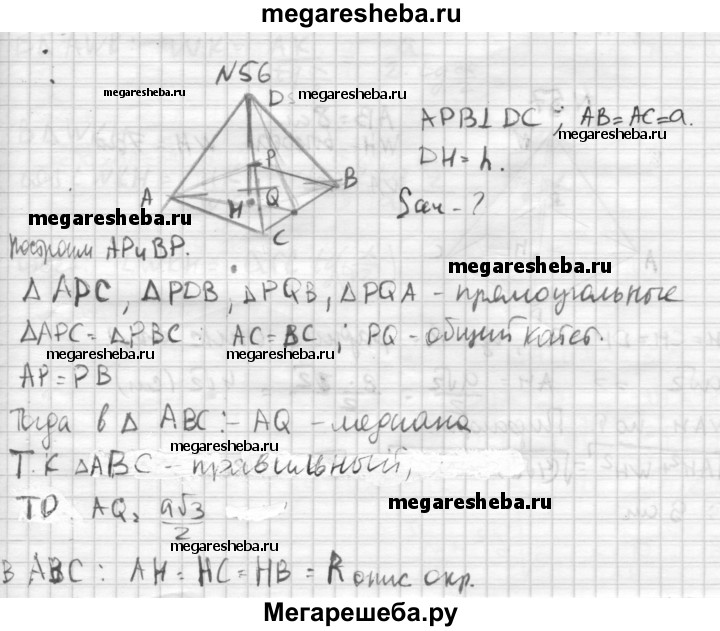 megaresheba.ru
N56
megaresheba.ru
D
megaresheba.ru
APB⊥DC; AB=AC=a.
megaresheba.ru
DH=h.
P
A
B
Q
H
megaresheba.ru
C
Sсеч - ?
Построим AP и BP.
megaresheba.ru
Δ APC, Δ PDB, Δ PQB, Δ PQA - прямоугольные
ΔAPC = ΔPBC: AC = BC; PQ - общий катет.
megaresheba.ru
megaresheba.ru
AP = PB
Тогда в Δ ABC: - AQ - медиана
megaresheba.ru
Т.к ΔABC - правильный,
megaresheba.ru
то AQ = a√3/2
megaresheba.ru
В ABC: AH = HC = HB = R опис окр.
Мегарешеба.ру